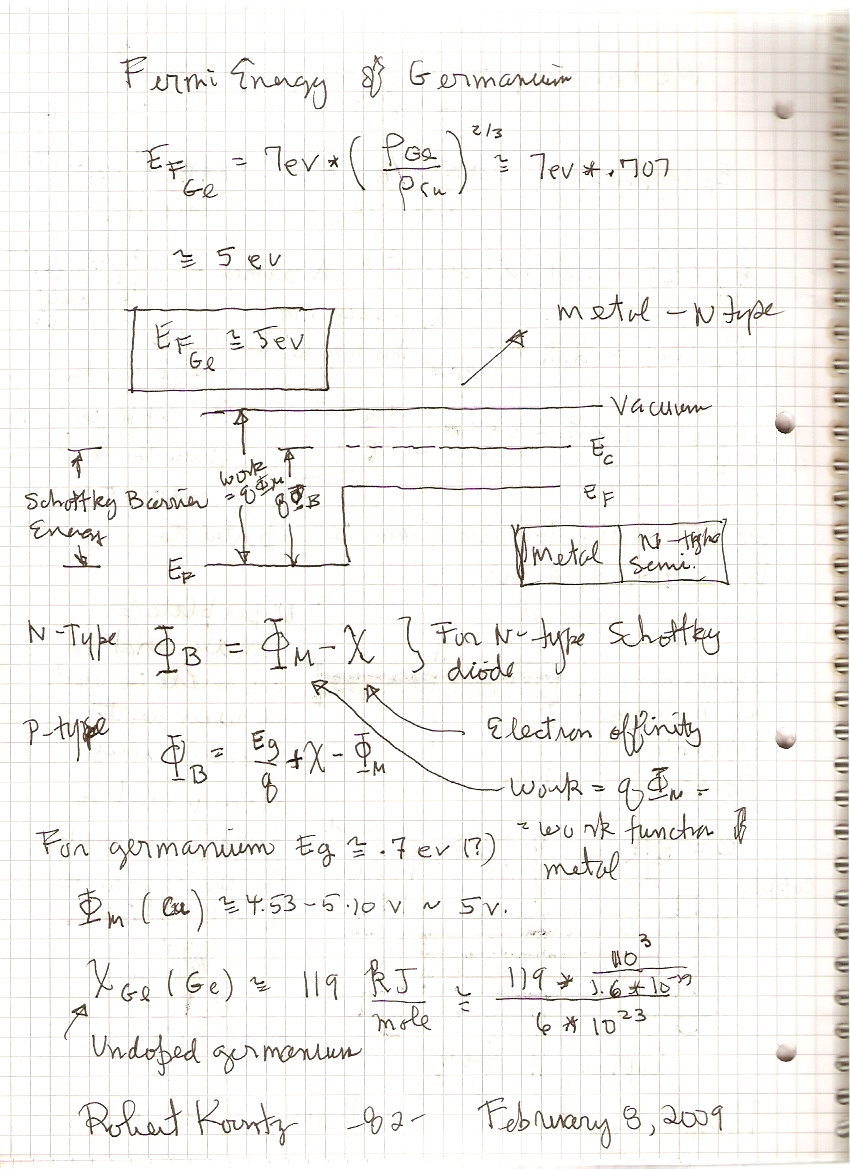 Fermi Energy of Germanium
E_F_Ge = 7ev * (ρGe / ρCu)^2/3 ≅ 7ev * .707
≅ 5 ev
metal - N type
E_F_Ge ≅ 5ev
Vacuum
E_C
work = qΦ_M
qΦ_B
Schottky Barrier Energy
E_F
E_F
Metal
N-type Semi.
N-Type Φ_B = Φ_M - χ } For N-type Schottky diode
P-type Φ_B = Eg/q + χ - Φ_M
Electron affinity
Work = qΦ_M =
= work function of metal
For germanium Eg ≅ .7 ev (?)
Φ_M (Cu) ≅ 4.53 - 5.10 v ~ 5 v.
χ_Ge (Ge) ≅ 119 kJ/mole ≅ (119 * 10^3/(1.6 * 10^-19)) / (6 * 10^23)
Undoped germanium
Robert Kountz -82- February 8, 2009